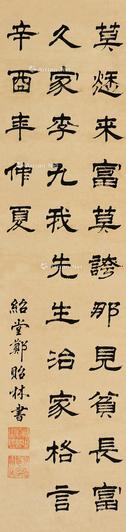 莫愁來富莫誇那見貧長富
久家李九我先生治家格言
辛酉年仲夏
紹堂鄭貽林書